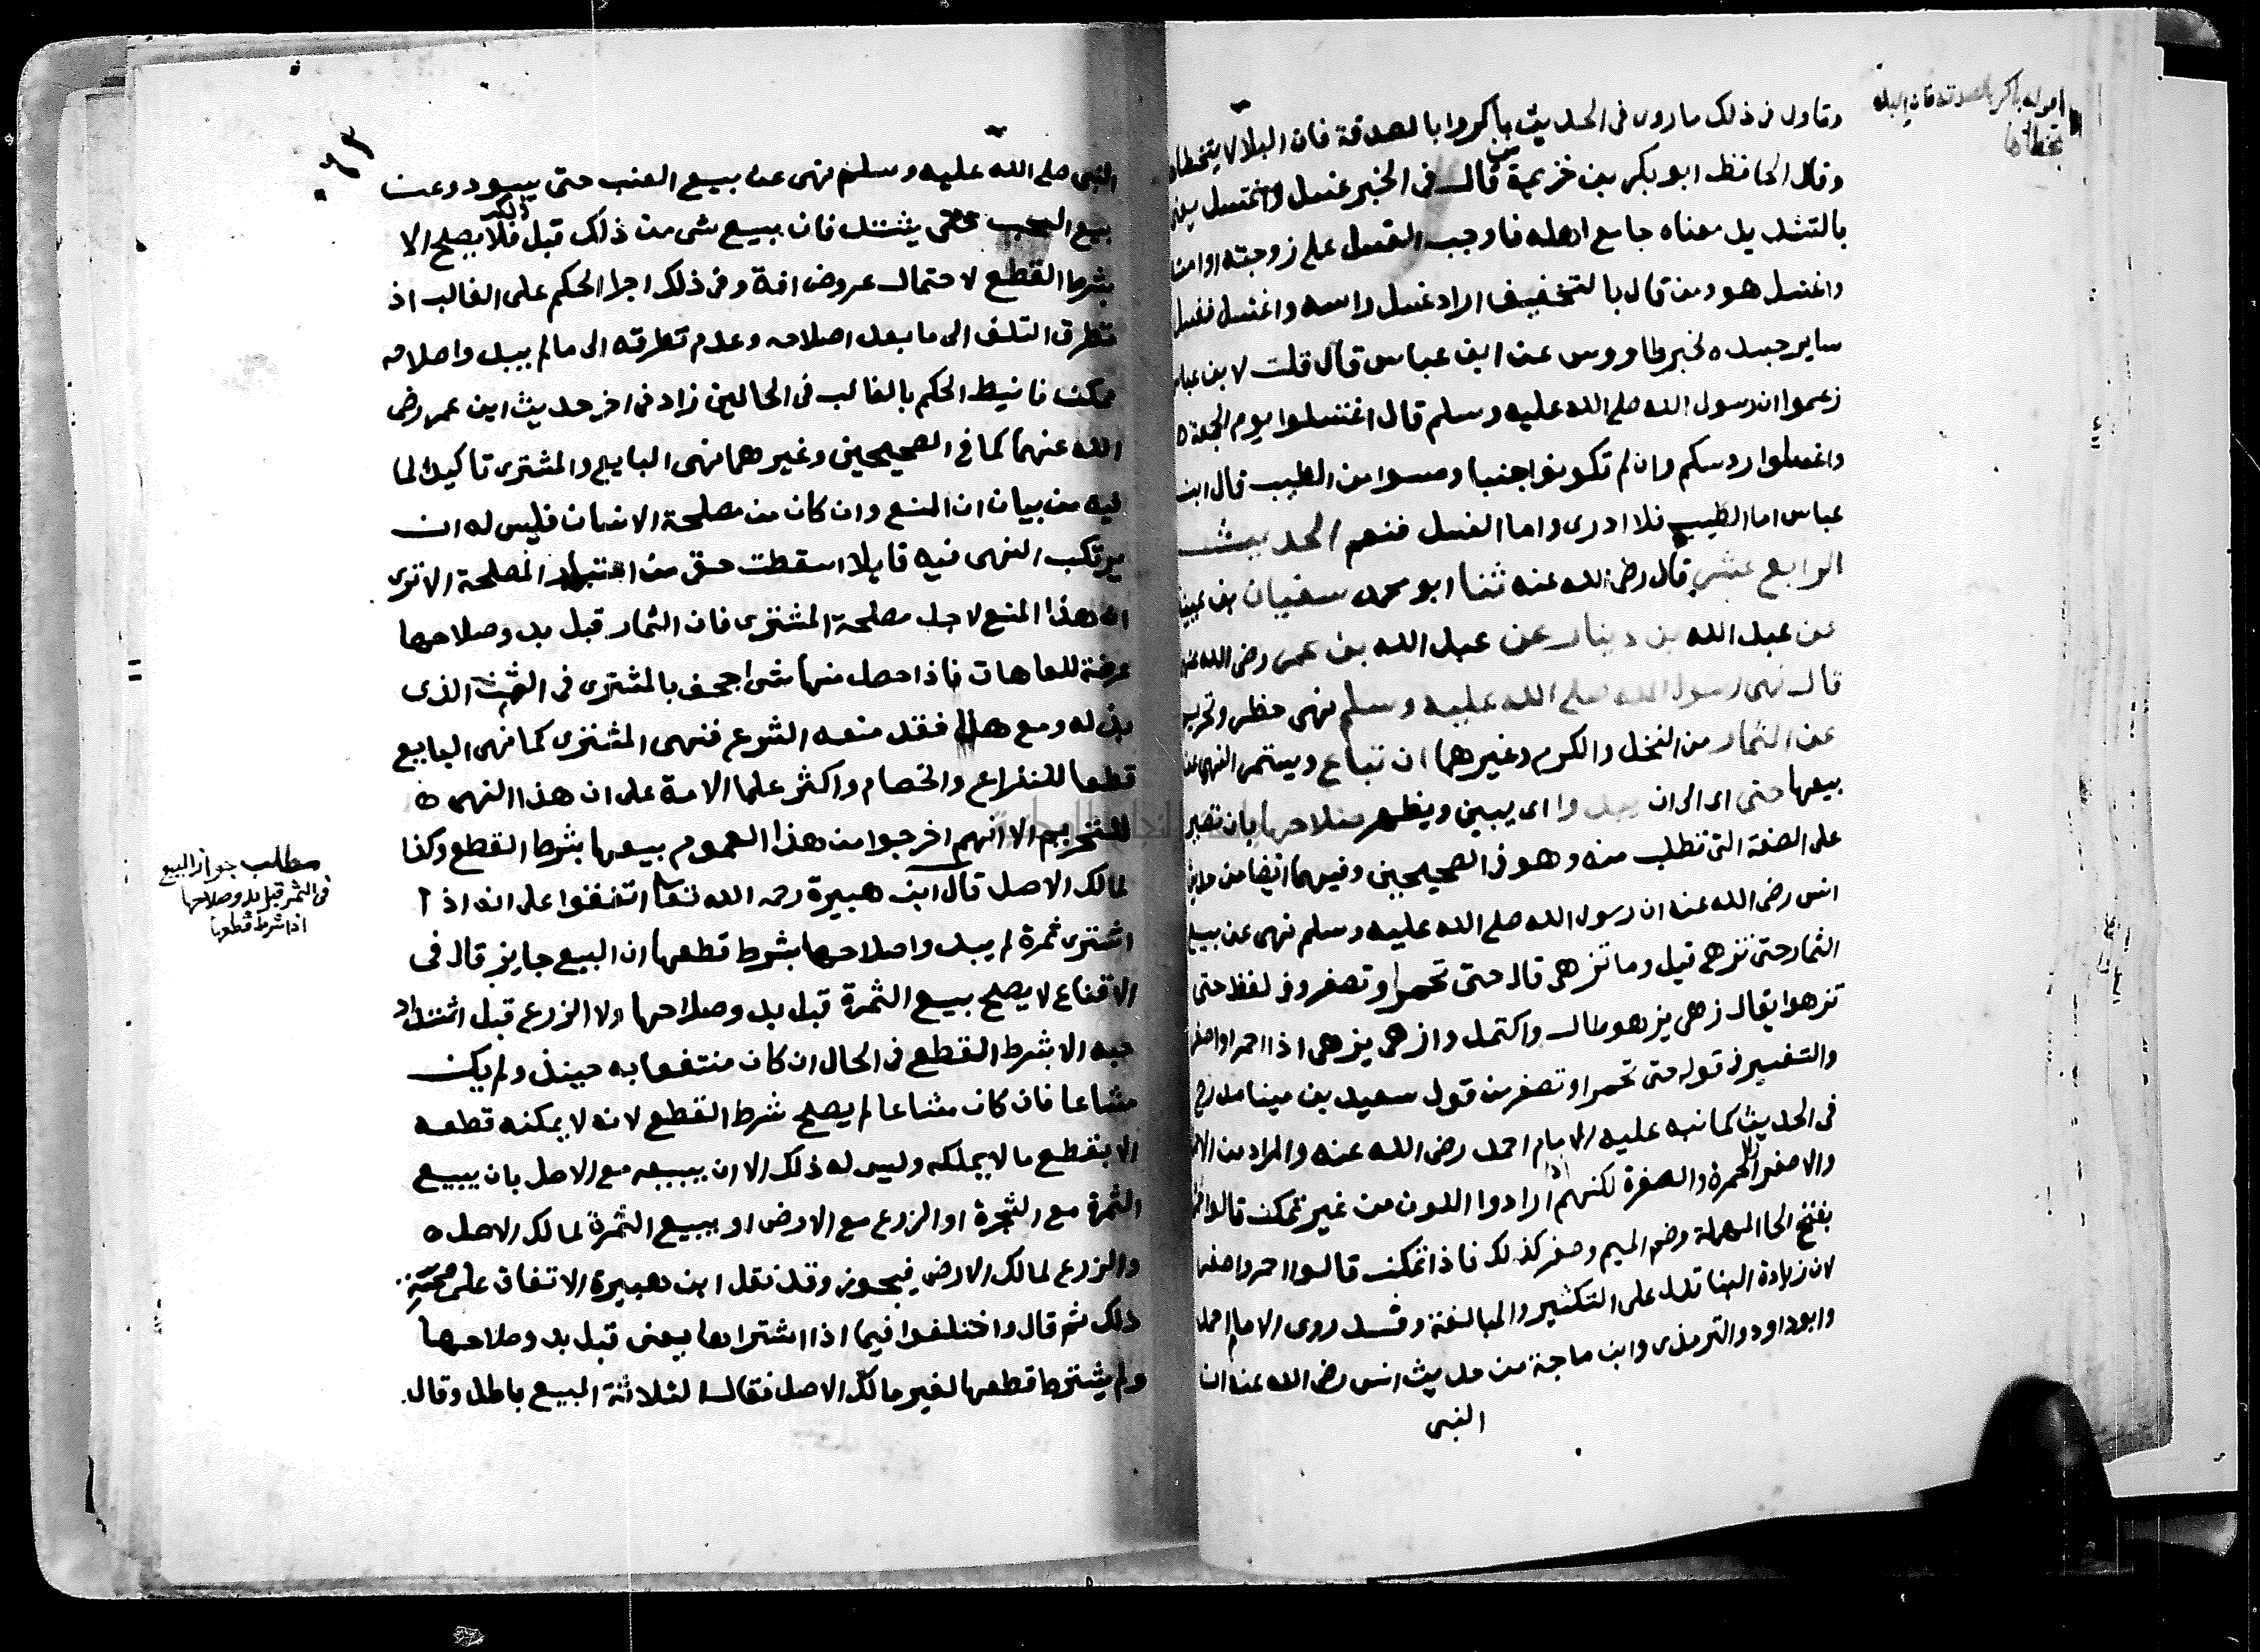 وتاول في ذلك ما روى في الحديث باكروا بالصدقة فان البلا لا يتخطاها
وقال الحافظ ابو بكر بن خزيمة من قال في الخبر غسل واغتسل يعني
بالتشديد معناه جامع اهله فاوجب الغسل على زوجته او امته
واغتسل هو ومن قال بالتخفيف اراد غسل راسه واغتسل فغسل
ساير جسده لخبر طاووس عن ابن عباس قال قلت لابن عباس
زعموا ان رسول الله صلى الله عليه وسلم قال اغتسلوا يوم الجمعة
واغسلوا روسكم وان لم تكونوا جنبا ومسوا من الطيب قال ابن
عباس اما الطيب فلا ادرى واما الغسل فنعم الحديث
الرابع عشر قال رضى الله عنه ثنا ابو محمد سفيان بن عيينة
عن عبد الله بن دينار عن عبد الله بن عمر رضى الله عنهما
قال نهى رسول الله صلى الله عليه وسلم نهى حظر وتحريم
عن الثمار من النخل والكرم وغيرهما ان تباع ويستمر النهى عن
بيعها حتى اى الى ان يبدوا اى يبين ويظهر صلاحها بان تصير
على الصفة التى تطلب منه وهو في الصحيحين وفيهما ايضا من حديث
انس رضى الله عنه ان رسول الله صلى الله عليه وسلم نهى عن بيع
الثمار حتى تزهى قيل وما تزهى قال حتى تحمر او تصفر وفى لفظ حتى
تزهوا يقال زهى يزهو طال واكتمل وازهى يزهى اذا احمر او اصفر
والتفسير في قوله حتى تحمر او تصفر من قول سعيد بن مينا مدرج
في الحديث كما نبه عليه الامام احمد رضى الله عنه والمراد من الاحمرار
والاصفرار الحمرة والصفرة لكنهم اذا ارادوا اللون من غير تمكن قالوا حمر
بفتح الحا المهملة وضم الميم وصفر كذلك فاذا تمكن قالوا احمر واصفر
لان زيادة البنا تدل على التكثير والمبالغة وقد روى الامام احمد
وابو داود والترمذى وابن ماجة من حديث انس رضى الله عنه ان
النبى
باكر بالصدقة فان البلا
النبى صلى الله عليه وسلم نهى عن بيع العنب حتى يسود وعن
بيع الحب حتى يشتد فان بيع شى من ذلك قبل ذلك فلا يصلح الا
بشرط القطع لاحتمال عروض افة وفى ذلك اجرا الحكم على الغالب اذ
تطرق التلف الى ما بعد اصلاحه وعدم تطرقه الى ما لم يبد واصلاحه
ممكن فانيط الحكم بالغالب في الحالين زاد في اخر حديث ابن عمر رضى
الله عنهما كما في الصحيحين وغيرهما نهى البايع والمشترى تاكيدا لما
فيه من بيان ان المنع وان كان من مصلحة الانسان فليس له ان
يرتكب النهى فيه قايلا اسقطت حقى من اعتبار المصلحة الا ترى
ان هذا المنع لاجل مصلحة المشترى فان الثمار قبل بدو صلاحها
عرضة للعاهات فاذا حصل منها شى اجحف بالمشترى في الثمن الذى
بذله ومع هذا فقد منعه الشرع فنهى المشترى كما نهى البايع
قطعا للنزاع والخصام واكثر علما الامة على ان هذا النهى
للتحريم الا انهم اخرجوا من هذا العموم بيعها بشرط القطع وكذا
لمالك الاصل قال ابن هبيرة رحمه الله تعالى اتفقوا على انه اذا
اشترى ثمرة لم يبد واصلاحها بشرط قطعها ان البيع جايز قال في
الاقناع لا يصلح بيع الثمرة قبل بدو صلاحها ولا الزرع قبل اشتداد
حبه الا بشرط القطع في الحال ان كان منتفعا به حينذ ولم يكن
مشاعا فان كان مشاعا لم يصلح شرط القطع لانه لا يمكنه قطعه
الا بقطع ما لا يملكه وليس له ذلك الا ان يبيعه مع الاصل بان يبيع
الثمرة مع الشجرة او الزرع مع الارض او يبيع الثمرة لمالك الاصل
والزرع لمالك الارض فيجوز وقد نقل ابن هبيرة الاتفاق على صحة
ذلك ثم قال واختلفوا فيما اذا اشتراها يعنى قبل بدو صلاحها
ولم يشترط قطعها لغير مالك الاصل فقال الثلاثة البيع باطل وقال
مطلب جواز البيع
في الثمر قبل بدو صلاحها
اذا شرط قطعها